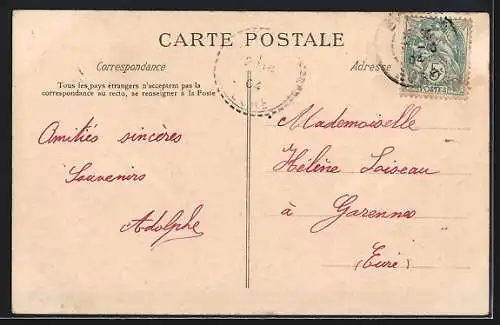 CARTE POSTALE
Correspondance
Adresse
Tous les pays étrangers n'acceptent pas la
correspondance au recto, se renseigner à la Poste
Amitiés sincères
Souvenirs
Adolphe
Mademoiselle
Hélène Loiseau
à Garennes
(Eure)
04
EURE
5
POSTES